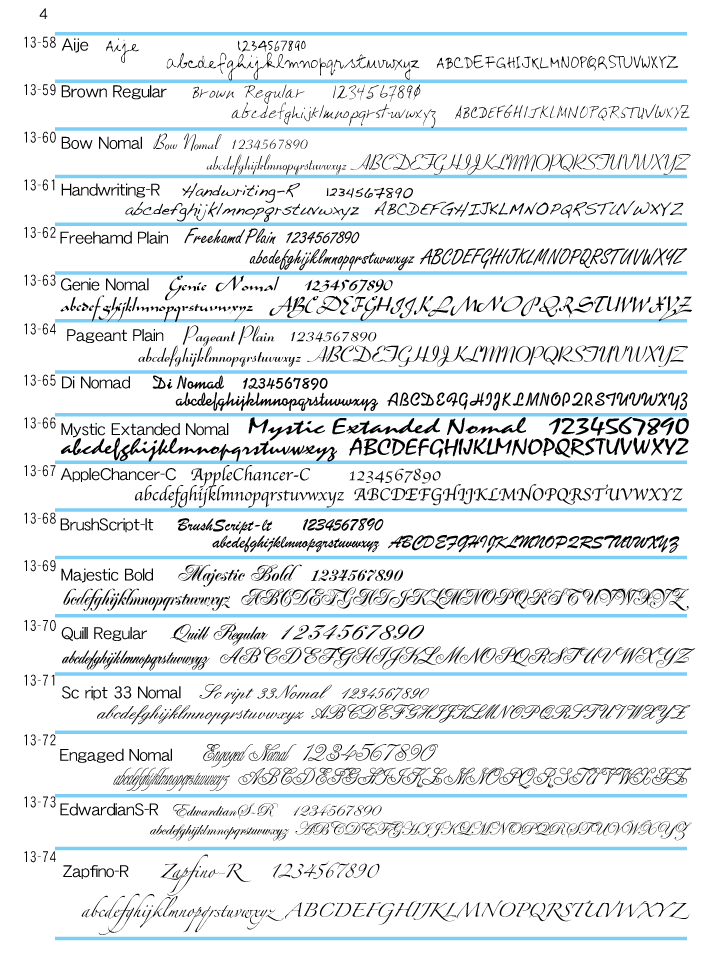 4
13-58 Aije Aije 1234567890
abcdefghijklmnopqrstuvwxyz ABCDEFGHIJKLMNOPQRSTUVWXYZ
13-59 Brown Regular Brown Regular 1234567890
abcdefghijklmnopqrstuvwxyz ABCDEFGHIJKLMNOPQRSTUVWXYZ
13-60 Bow Nomal Bow Nomal 1234567890
abcdefghijklmnopqrstuvwxyz ABCDEFGHIJKLMNOPQRSTUVWXYZ
13-61 Handwriting-R Handwriting-R 1234567890
abcdefghijklmnopqrstuvwxyz ABCDEFGHIJKLMNOPQRSTUVWXYZ
13-62 Freehamd Plain Freehamd Plain 1234567890
abcdefghijklmnopqrstuvwxyz ABCDEFGHIJKLMNOPQRSTUVWXYZ
13-63 Genie Nomal Genie Nomal 1234567890
abcdefghijklmnopqrstuvwxyz ABCDEFGHIJKLMNOPQRSTUVWXYZ
13-64 Pageant Plain Pageant Plain 1234567890
abcdefghijklmnopqrstuvwxyz ABCDEFGHIJKLMNOPQRSTUVWXYZ
13-65 Di Nomad Di Nomad 1234567890
abcdefghijklmnopqrstuvwxyz ABCDEFGHIJKLMNOPQRSTUVWXYZ
13-66 Mystic Extanded Nomal Mystic Extanded Nomal 1234567890
abcdefghijklmnopqrstuvwxyz ABCDEFGHIJKLMNOPQRSTUVWXYZ
13-67 AppleChancer-C AppleChancer-C 1234567890
abcdefghijklmnopqrstuvwxyz ABCDEFGHIJKLMNOPQRSTUVWXYZ
13-68 BrushScript-It BrushScript-It 1234567890
abcdefghijklmnopqrstuvwxyz ABCDEFGHIJKLMNOPQRSTUVWXYZ
13-69 Majestic Bold Majestic Bold 1234567890
bcdefghijklmnopqrstuvwxyz ABCDEFGHIJKLMNOPQRSTUVWXYZ
13-70 Quill Regular Quill Regular 1234567890
abcdefghijklmnopqrstuvwxyz ABCDEFGHIJKLMNOPQRSTUVWXYZ
13-71 Sc ript 33 Nomal Sc ript 33 Nomal 1234567890
abcdefghijklmnopqrstuvwxyz ABCDEFGHIJKLMNOPQRSTUVWXYZ
13-72 Engaged Nomal Engaged Nomal 1234567890
abcdefghijklmnopqrstuvwxyz ABCDEFGHIJKLMNOPQRSTUVWXYZ
13-73 EdwardianS-R EdwardianS-R 1234567890
abcdefghijklmnopqrstuvwxyz ABCDEFGHIJKLMNOPQRSTUVWXYZ
13-74 Zapfino-R Zapfino-R 1234567890
abcdefghijklmnopqrstuvwxyz ABCDEFGHIJKLMNOPQRSTUVWXYZ